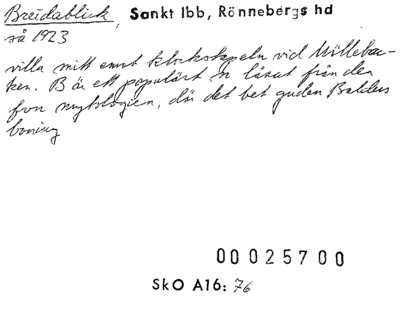 Breidablick, Sankt Ibb, Rönnebergs hd
så 1923
villa mitt emot klockstapeln vid Möllebac-
ken. B är ett populärt n lånat från den
fvn mytologien, där det bet guden Balders
boning
00025700
SkO A16: 76